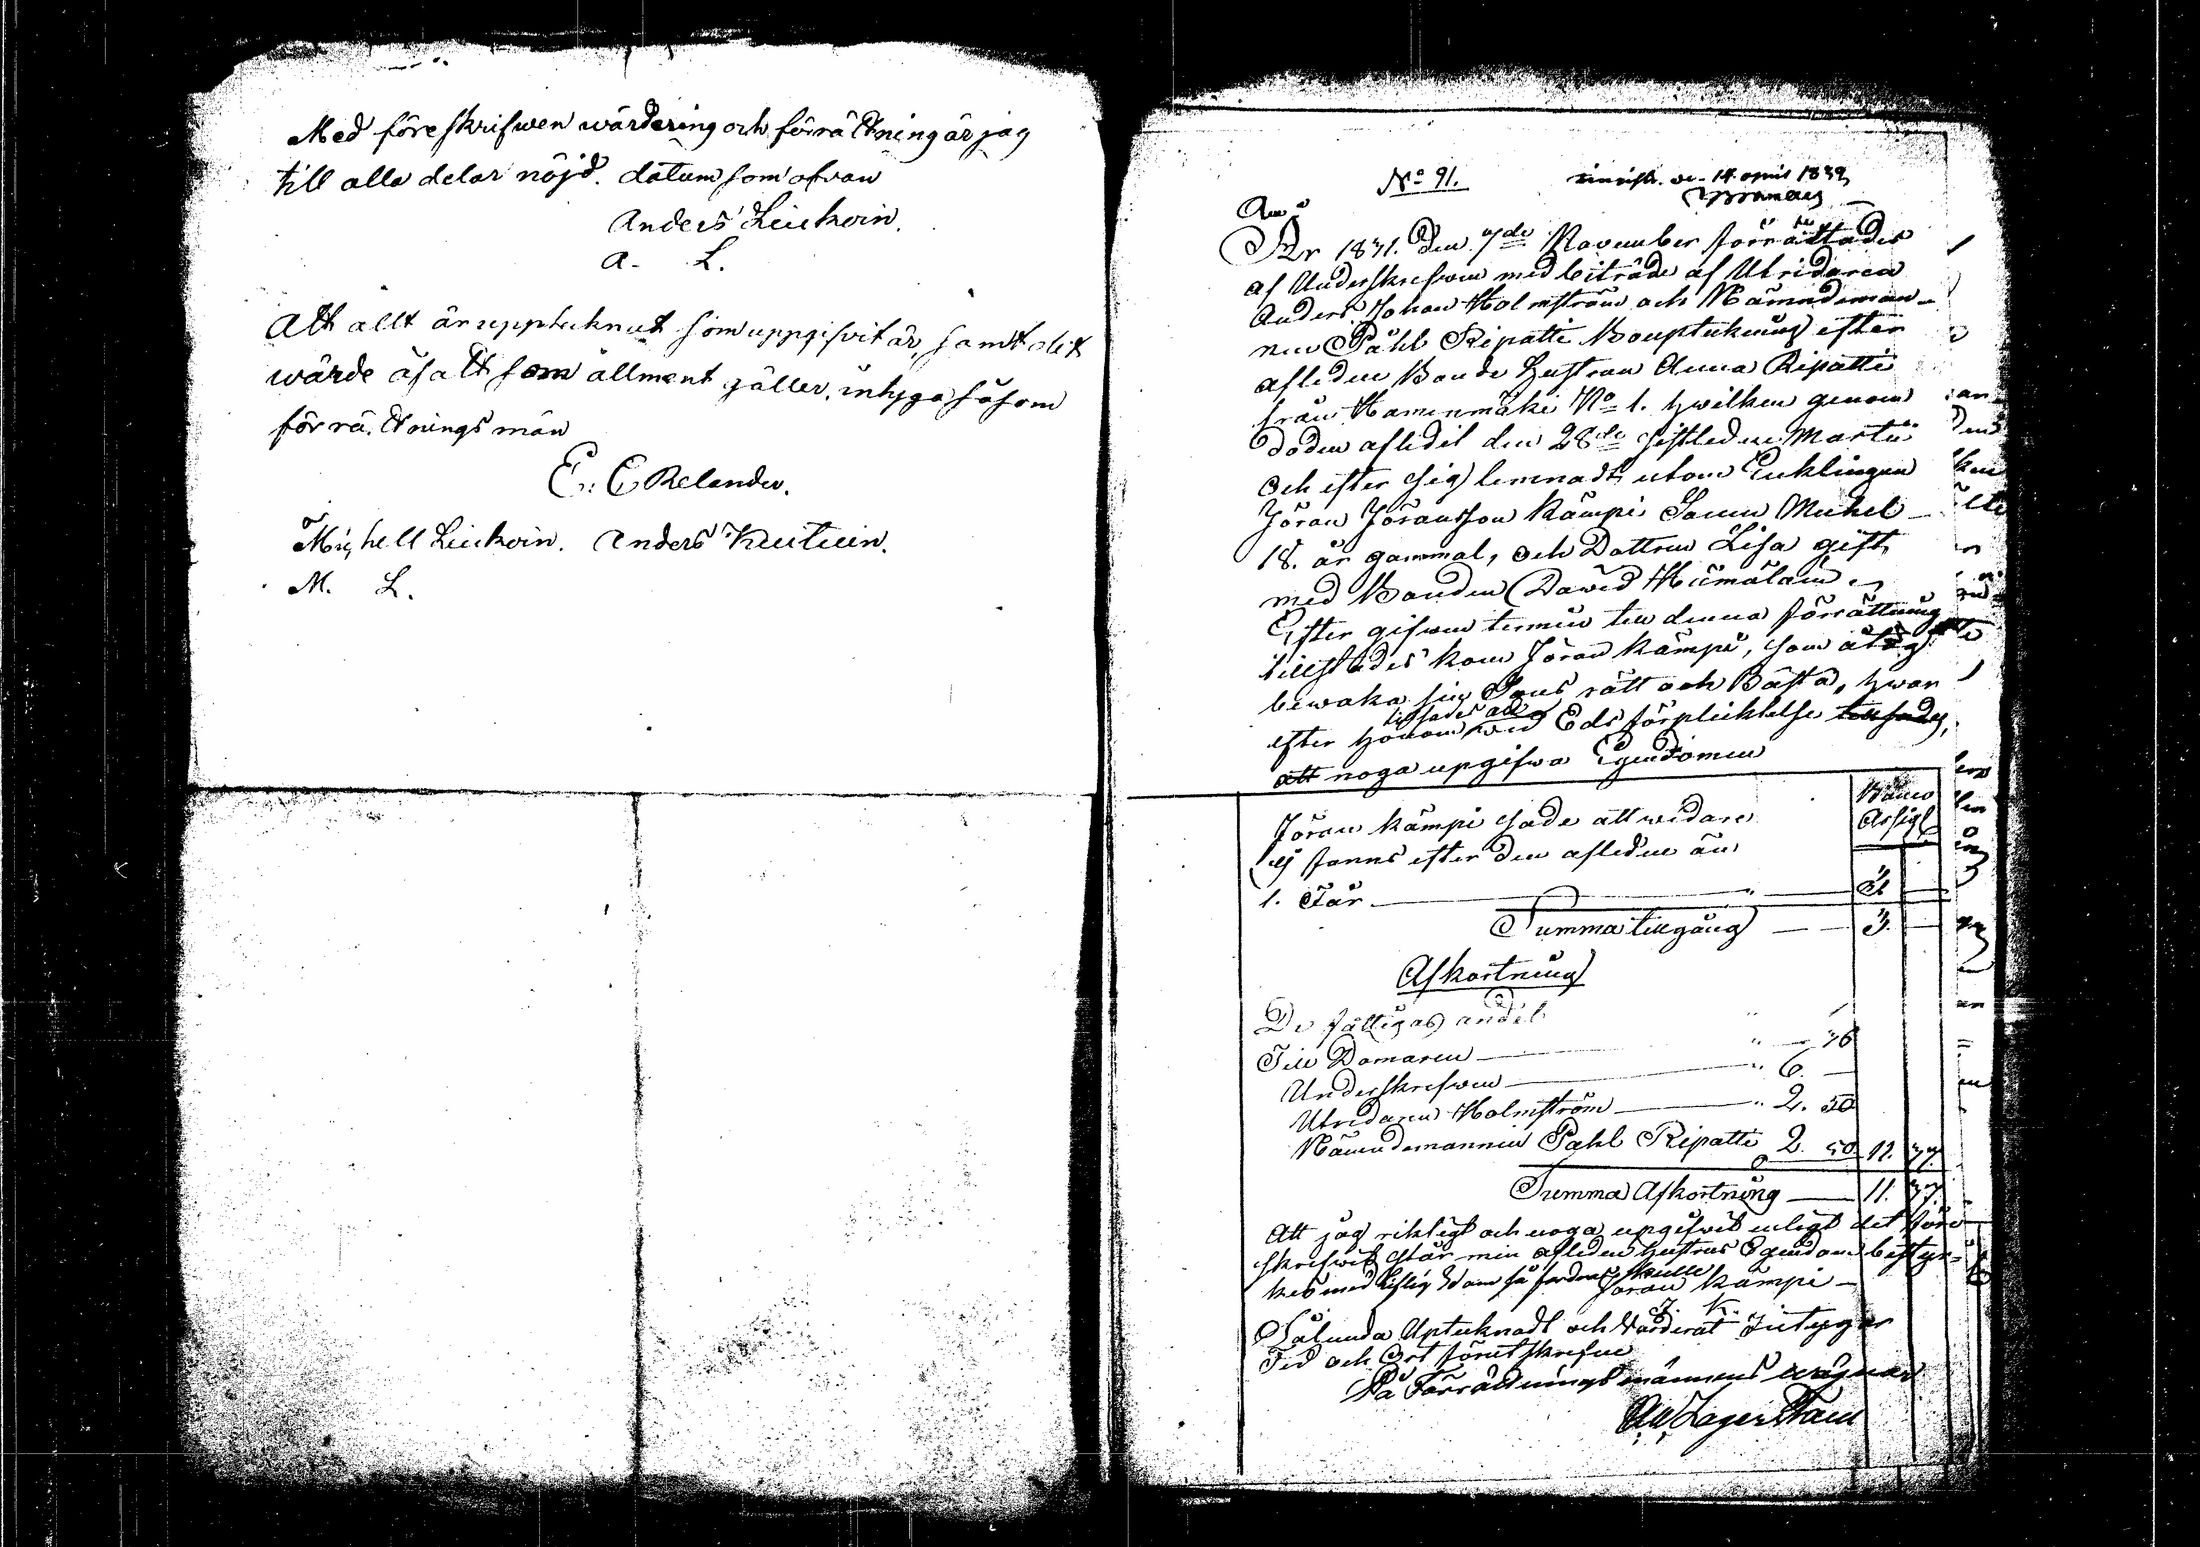 Med föreskrifwen wärdering och förrättning är jag
till alla delar nöjd. datum som ofvan
Anders Liukoin.
A. L.
Att allt är upptecknat som uppgifvit är, samt det
wärde åsatt som allment gäller, intyga såsom
förrättnings män
E. E Relander.
Michell Liukoin. Anders Kuituin.
M. L.
No 91.
14 april 1832
År 1831. den 7de November förrättades
af Underskrefwen med biträde af Utridaren
Anders Johan Holmström och Nämndeman-
nen Påhl Ripatti Bouptekning efter
afledne Bonde Hustrun Anna Ripatti
från Hamenmäki No 1. hwilken genom
döden aflidit den 28de sistledne Martii
och efter sig lemnadt, utom Enklingen
Jöran Jöransson Kämpi Sonen Mickel
18. år gammal, och Dottren Lisa gift
med Bonden David Hiimäläin.
Efter gifwen termin till denna förrättning
tillstädes kom Jöran Kämpi, som ålåg
bewaka sin Sons rätt och Bästa, hwar
tilsades att
efter honom wid Eds förpliktelse tillsades,
att noga upgifwa Egendomen
Banco
Assig
Jöran Kämpi sade att widare
ej fanns efter den afledne än
1. Får 3
Summa tillgång 3.
Afkortning
De fattigas andel
Till Domaren 36
Underskrefwen 6.
Utridaren Holmström 2. 50
Nämndemannen Påhl Ripatti 2 50 11. 37.
Summa Afkortning 11. 37.
Att jag riktigt och noga upgifwit enligt det före
skrefwit står min afledne hustrus Egendom bestyr-
kes med liflig Ed om så fordras skulle
Jöran Kämpi
J. K.
Sålunda Upteknadt och Värderat Intyger
Tid och Ort förutskrefne
På Förrättningsmännens wägnar
Lagerstam